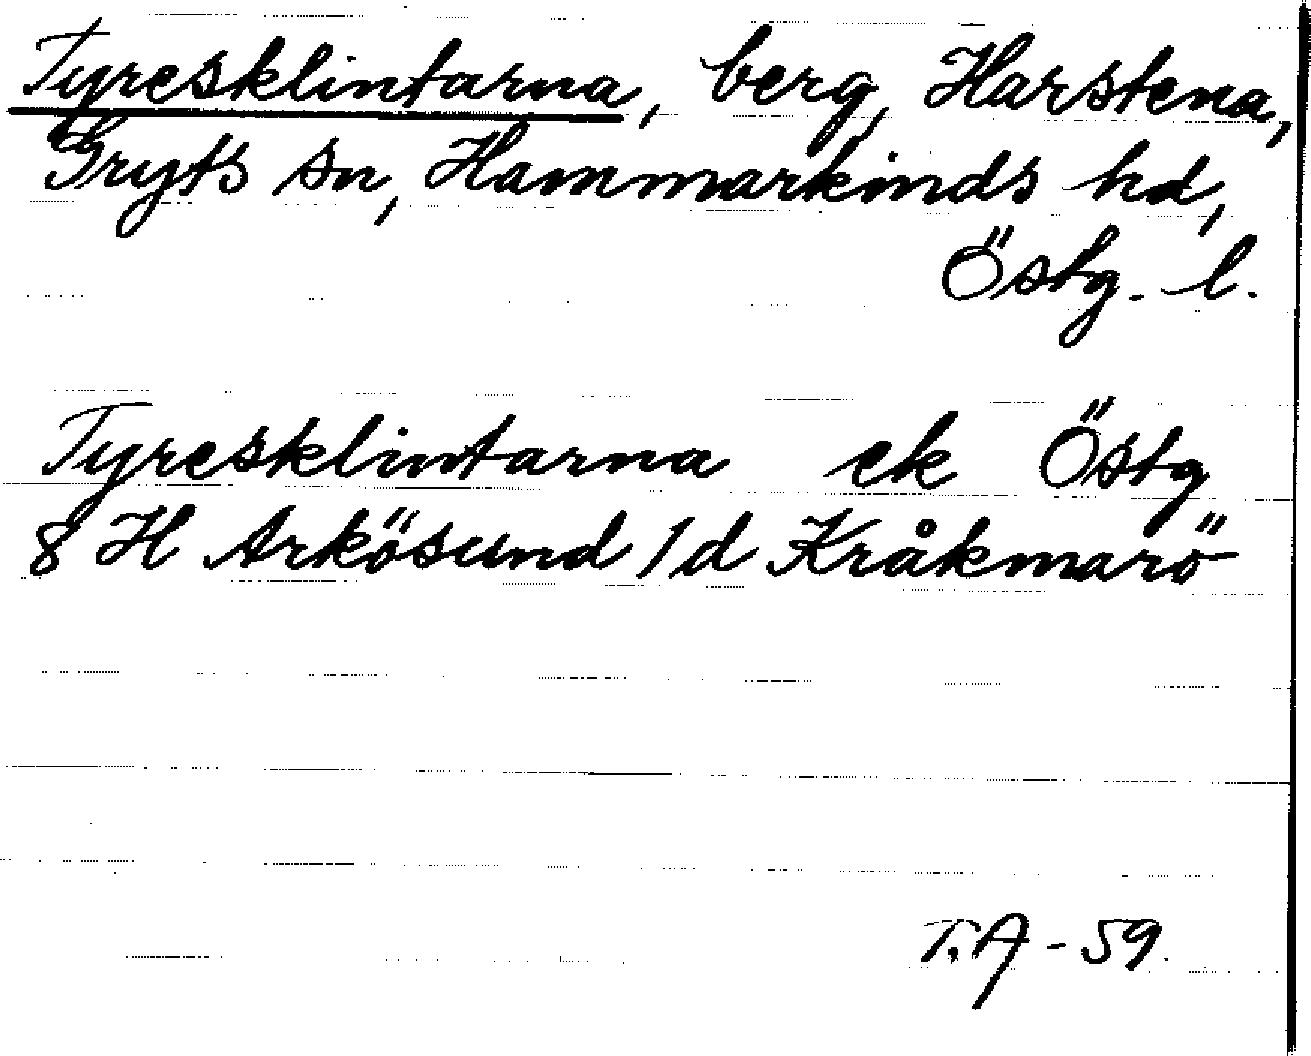 Tyresklintarna, berg, Harstena,
Gryts sn, Hammarkinds hd,
Östg. l.
Tyresklintarna ek Östg
8 H Arkösund /d Kråkmarö
T.A - 59.